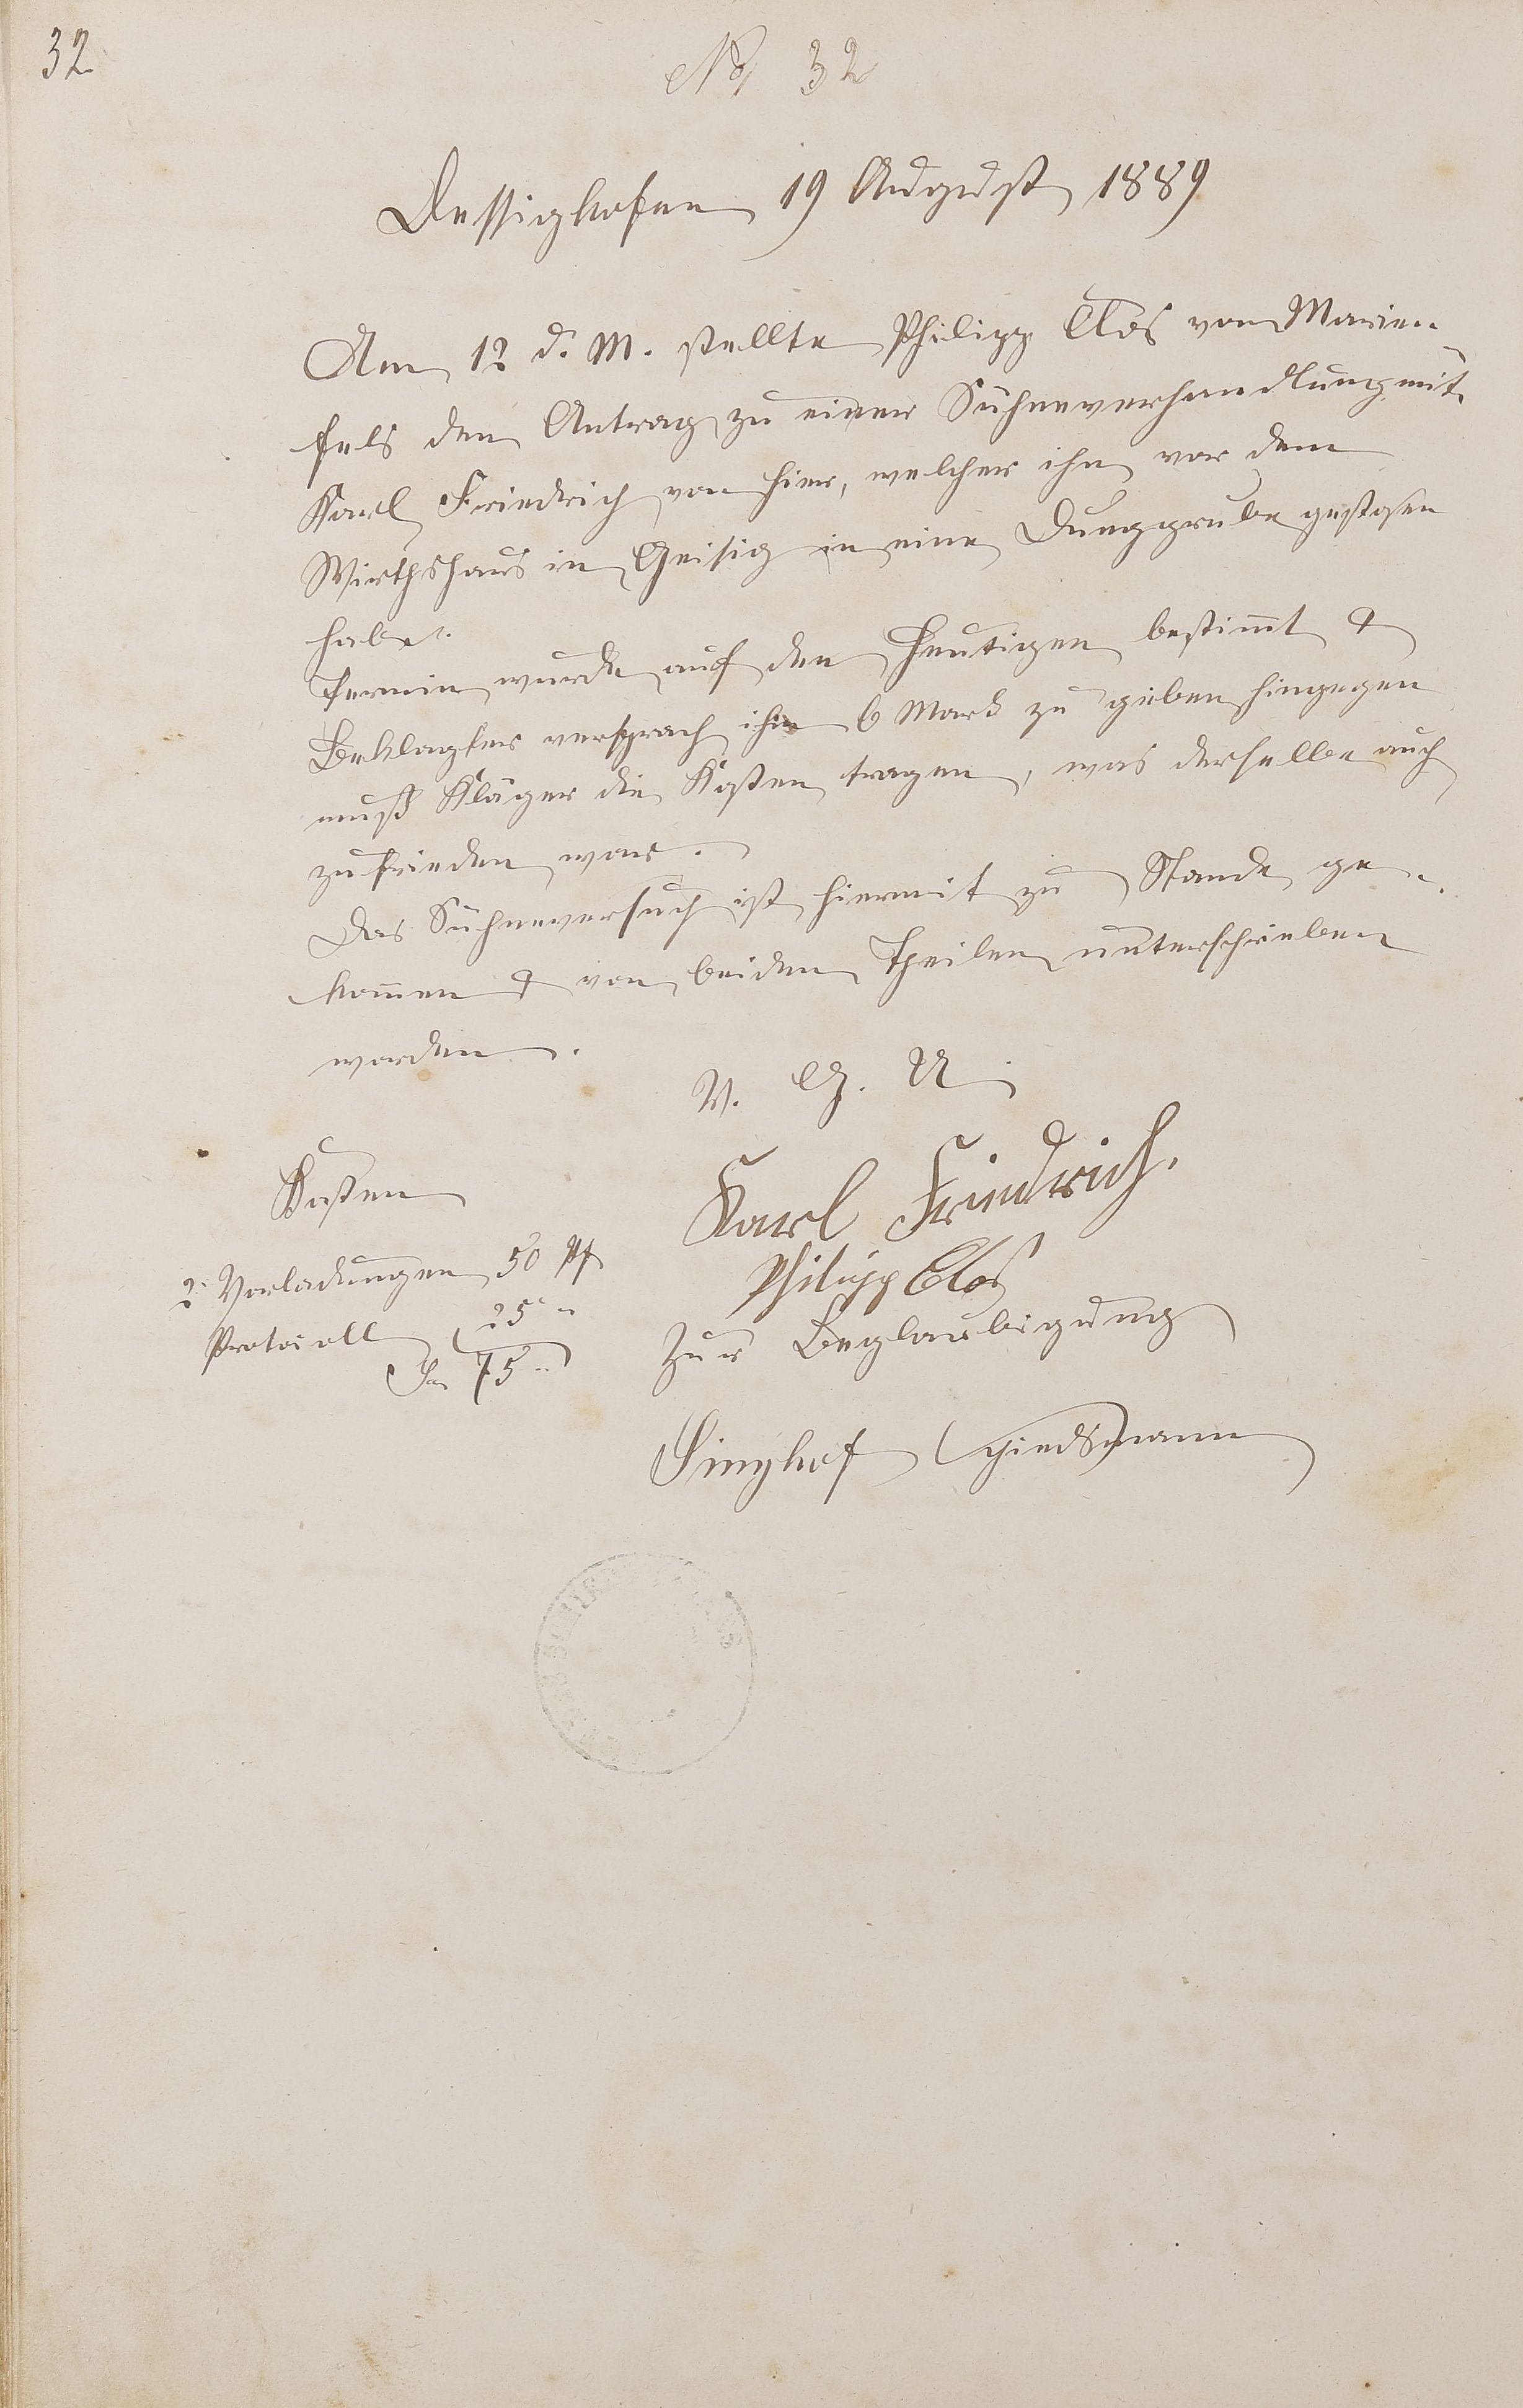 32
No 32
Dessighofen 19 August 1889
Am 12 d. M. stellte Philipp Clos von Marien-
fels den Antrag zu einer Sühneverhandlung mit
Karl Friedrich von hier, welcher ihn vor dem
Wirthshaus in Geisig in eine Dunggrube gestosen
habe.
Termin wurde auf den Heutigen bestim̅t &
Beklagter versprach ihm 6 Mark zu geben hingegen
muß Kläger die Kosten tragen, was derselbe auch
zufrieden war.
Das Sühneversuch ist hiermit zu Stande ge-
kom̅en & von beiden Theilen unterschrieben
worden.
V. G. U.
Karl Friedrich.
Philipp Clos
Zur Beglaubigung
Singhof Schiedsmann
Kosten
2 Vorladungen 50 Pf
Protocoll 25 "
Sa 75 "